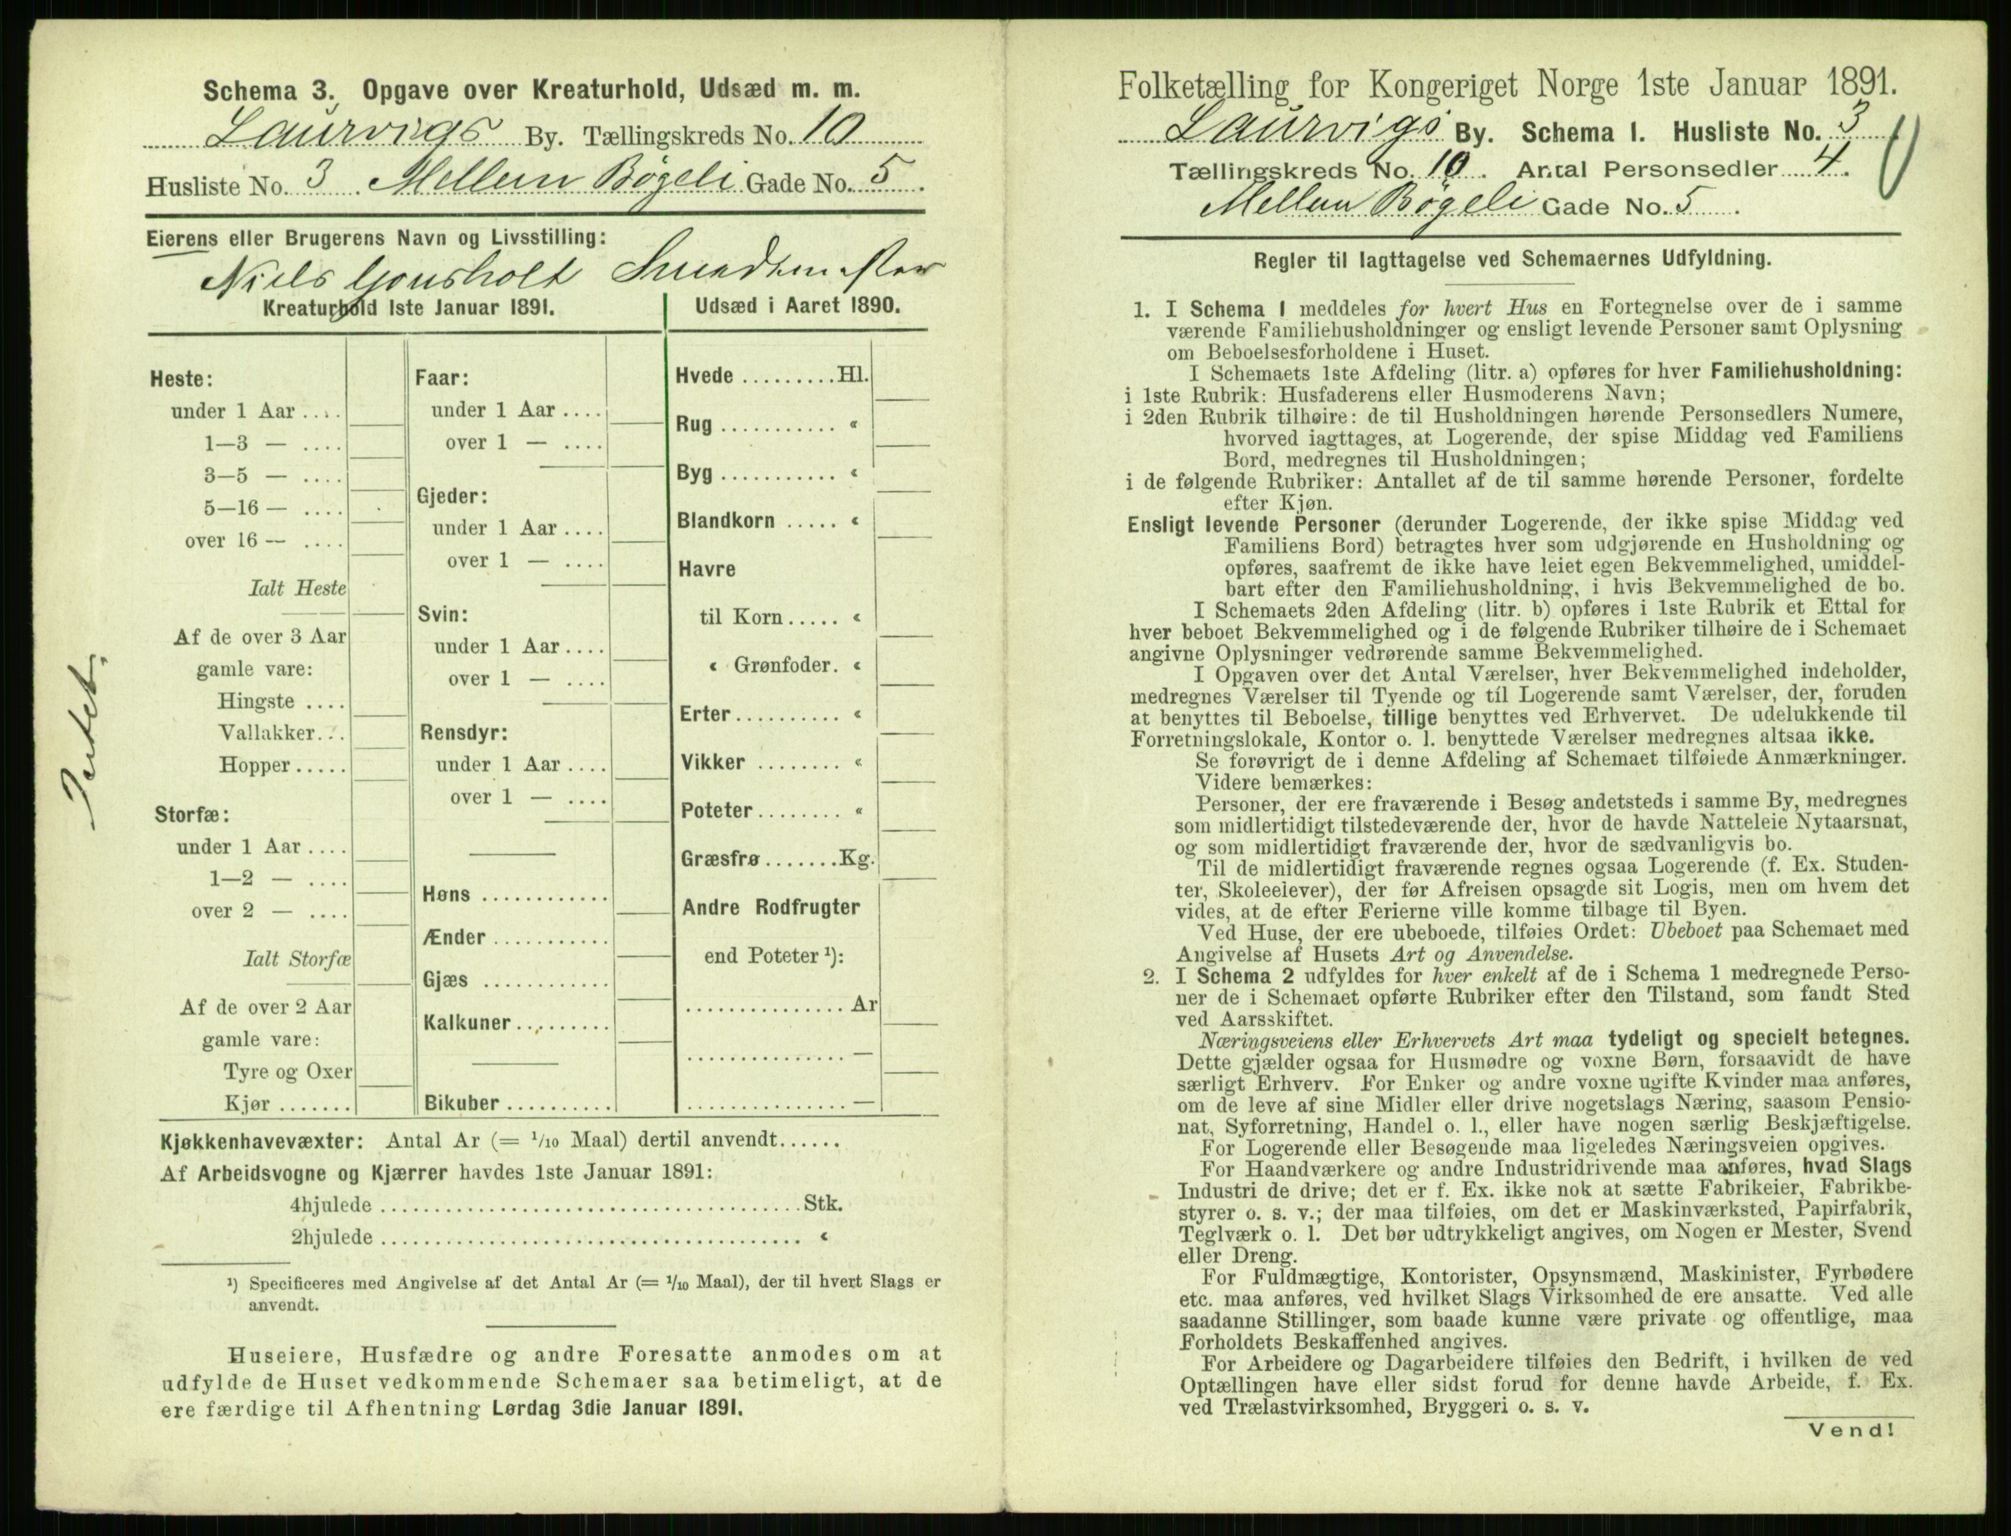 Schema 3. Opgave over Kreaturhold, Udsæd m. m.
Laurvigs By. Tællingskreds No. 10
Husliste No. 3. Mellem Bøgeli Gade No. 5.
Eierens eller Brugerens Navn og Livsstilling:
Niels Gousholt Smedmester
Kreaturhold 1ste Januar 1891.
Heste:
under 1 Aar ....
1—3 — ....
3—5 — ....
5—16 — ....
over 16 — ....
Ialt Heste
Af de over 3 Aar
gamle vare:
Hingste ....
Vallakker...
Hopper.....
Storfæ:
under 1 Aar ....
1—2 — ....
over 2 — ....
Ialt Storfæ
Af de over 2 Aar
gamle vare:
Tyre og Oxer
Kjør .......
Faar:
under 1 Aar ....
over 1 — ....
Gjeder:
under 1 Aar ....
over 1 — ....
Svin:
under 1 Aar ....
over 1 — ....
Rensdyr:
under 1 Aar ....
over 1 — ....
Høns ............
Ænder ...........
Gjæs ............
Kalkuner.........
Bikuber ..........
Udsæd i Aaret 1890.
Hvede .........Hl.
Rug ........... «
Byg ........... «
Blandkorn ..... «
Havre
til Korn..... «
« Grønfoder. «
Erter.......... «
Vikker ........ «
Poteter........ «
Græsfrø .......Kg.
Andre Rodfrugter
end Poteter ¹):
............... Ar
............... —
............... —
Kjøkkenhavevæxter: Antal Ar (= 1/10 Maal) dertil anvendt......
Af Arbeidsvogne og Kjærrer havdes 1ste Januar 1891:
4hjulede ........................................Stk.
2hjulede ........................................ «
¹) Specificeres med Angivelse af det Antal Ar (= 1/10 Maal), der til hvert Slags er
anvendt.
Huseiere, Husfædre og andre Foresatte anmodes om at
udfylde de Huset vedkommende Schemaer saa betimeligt, at de
ere færdige til Afhentning Lørdag 3die Januar 1891.
Folketælling for Kongeriget Norge 1ste Januar 1891.
Laurvigs By. Schema 1. Husliste No. 3
Tællingskreds No. 10. Antal Personsedler 4.
Mellem Bøgeli Gade No. 5.
Regler til Iagttagelse ved Schemaernes Udfyldning.
1. I Schema 1 meddeles for hvert Hus en Fortegnelse over de i samme
værende Familiehusholdninger og ensligt levende Personer samt Oplysning
om Beboelsesforholdene i Huset.
I Schemaets 1ste Afdeling (litr. a) opføres for hver Familiehusholdning:
i 1ste Rubrik: Husfaderens eller Husmoderens Navn;
i 2den Rubrik tilhøire: de til Husholdningen hørende Personsedlers Numere,
hvorved iagttages, at Logerende, der spise Middag ved Familiens
Bord, medregnes til Husholdningen;
i de følgende Rubriker: Antallet af de til samme hørende Personer, fordelte
efter Kjøn.
Ensligt levende Personer (derunder Logerende, der ikke spise Middag ved
Familiens Bord) betragtes hver som udgjørende en Husholdning og
opføres, saafremt de ikke have leiet egen Bekvemmelighed, umiddel-
bart efter den Familiehusholdning, i hvis Bekvemmelighed de bo.
I Schemaets 2den Afdeling (litr. b) opføres i 1ste Rubrik et Ettal for
hver beboet Bekvemmelighed og i de følgende Rubriker tilhøire de i Schemaet
angivne Oplysninger vedrørende samme Bekvemmelighed.
I Opgaven over det Antal Værelser, hver Bekvemmelighed indeholder,
medregnes Værelser til Tyende og til Logerende samt Værelser, der, foruden
at benyttes til Beboelse, tillige benyttes ved Erhvervet. De udelukkende til
Forretningslokale, Kontor o. l. benyttede Værelser medregnes altsaa ikke.
Se forøvrigt de i denne Afdeling af Schemaet tilføiede Anmærkninger.
Videre bemærkes:
Personer, der ere fraværende i Besøg andetsteds i samme By, medregnes
som midlertidigt tilstedeværende der, hvor de havde Natteleie Nytaarsnat,
og som midlertidigt fraværende der, hvor de sædvanligvis bo.
Til de midlertidigt fraværende regnes ogsaa Logerende (f. Ex. Studen-
ter, Skoleelever), der før Afreisen opsagde sit Logis, men om hvem det
vides, at de efter Ferierne ville komme tilbage til Byen.
Ved Huse, der ere ubeboede, tilføies Ordet: Ubeboet paa Schemaet med
Angivelse af Husets Art og Anvendelse.
2. I Schema 2 udfyldes for hver enkelt af de i Schema 1 medregnede Perso-
ner de i Schemaet opførte Rubriker efter den Tilstand, som fandt Sted
ved Aarsskiftet.
Næringsveiens eller Erhvervets Art maa tydeligt og specielt betegnes.
Dette gjælder ogsaa for Husmødre og voxne Børn, forsaavidt de have
særligt Erhverv. For Enker og andre voxne ugifte Kvinder maa anføres,
om de leve af sine Midler eller drive nogetslags Næring, saasom Pensio-
nat, Syforretning, Handel o. l., eller have nogen særlig Beskjæftigelse.
For Logerende eller Besøgende maa ligeledes Næringsveien opgives.
For Haandværkere og andre Industridrivende maa anføres, hvad Slags
Industri de drive; det er f. Ex. ikke nok at sætte Fabrikeier, Fabrikbe-
styrer o. s. v.; der maa tilføies, om det er Maskinværksted, Papirfabrik,
Teglværk o. l. Det bør udtrykkeligt angives, om Nogen er Mester, Svend
eller Dreng.
For Fuldmægtige, Kontorister, Opsynsmænd, Maskinister, Fyrbødere
etc. maa anføres, ved hvilket Slags Virksomhed de ere ansatte. Ved alle
saadanne Stillinger, som baade kunne være private og offentlige, maa
Forholdets Beskaffenhed angives.
For Arbeidere og Dagarbeidere tilføies den Bedrift, i hvilken de ved
Optællingen have eller sidst forud for denne havde Arbeide, f. Ex.
ved Trælastvirksomhed, Bryggeri o. s. v.
Vend!